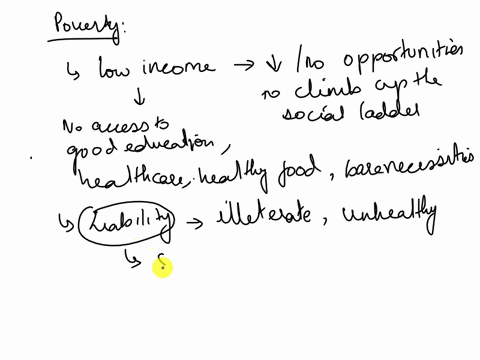 Poverty:
↳ low income → ↓ /no opportunities
↓ to climb up the
social ladder
No access to
good education,
healthcare, healthy food, bare necessities
↳ Liability → illeterate, unhealthy
↳ s